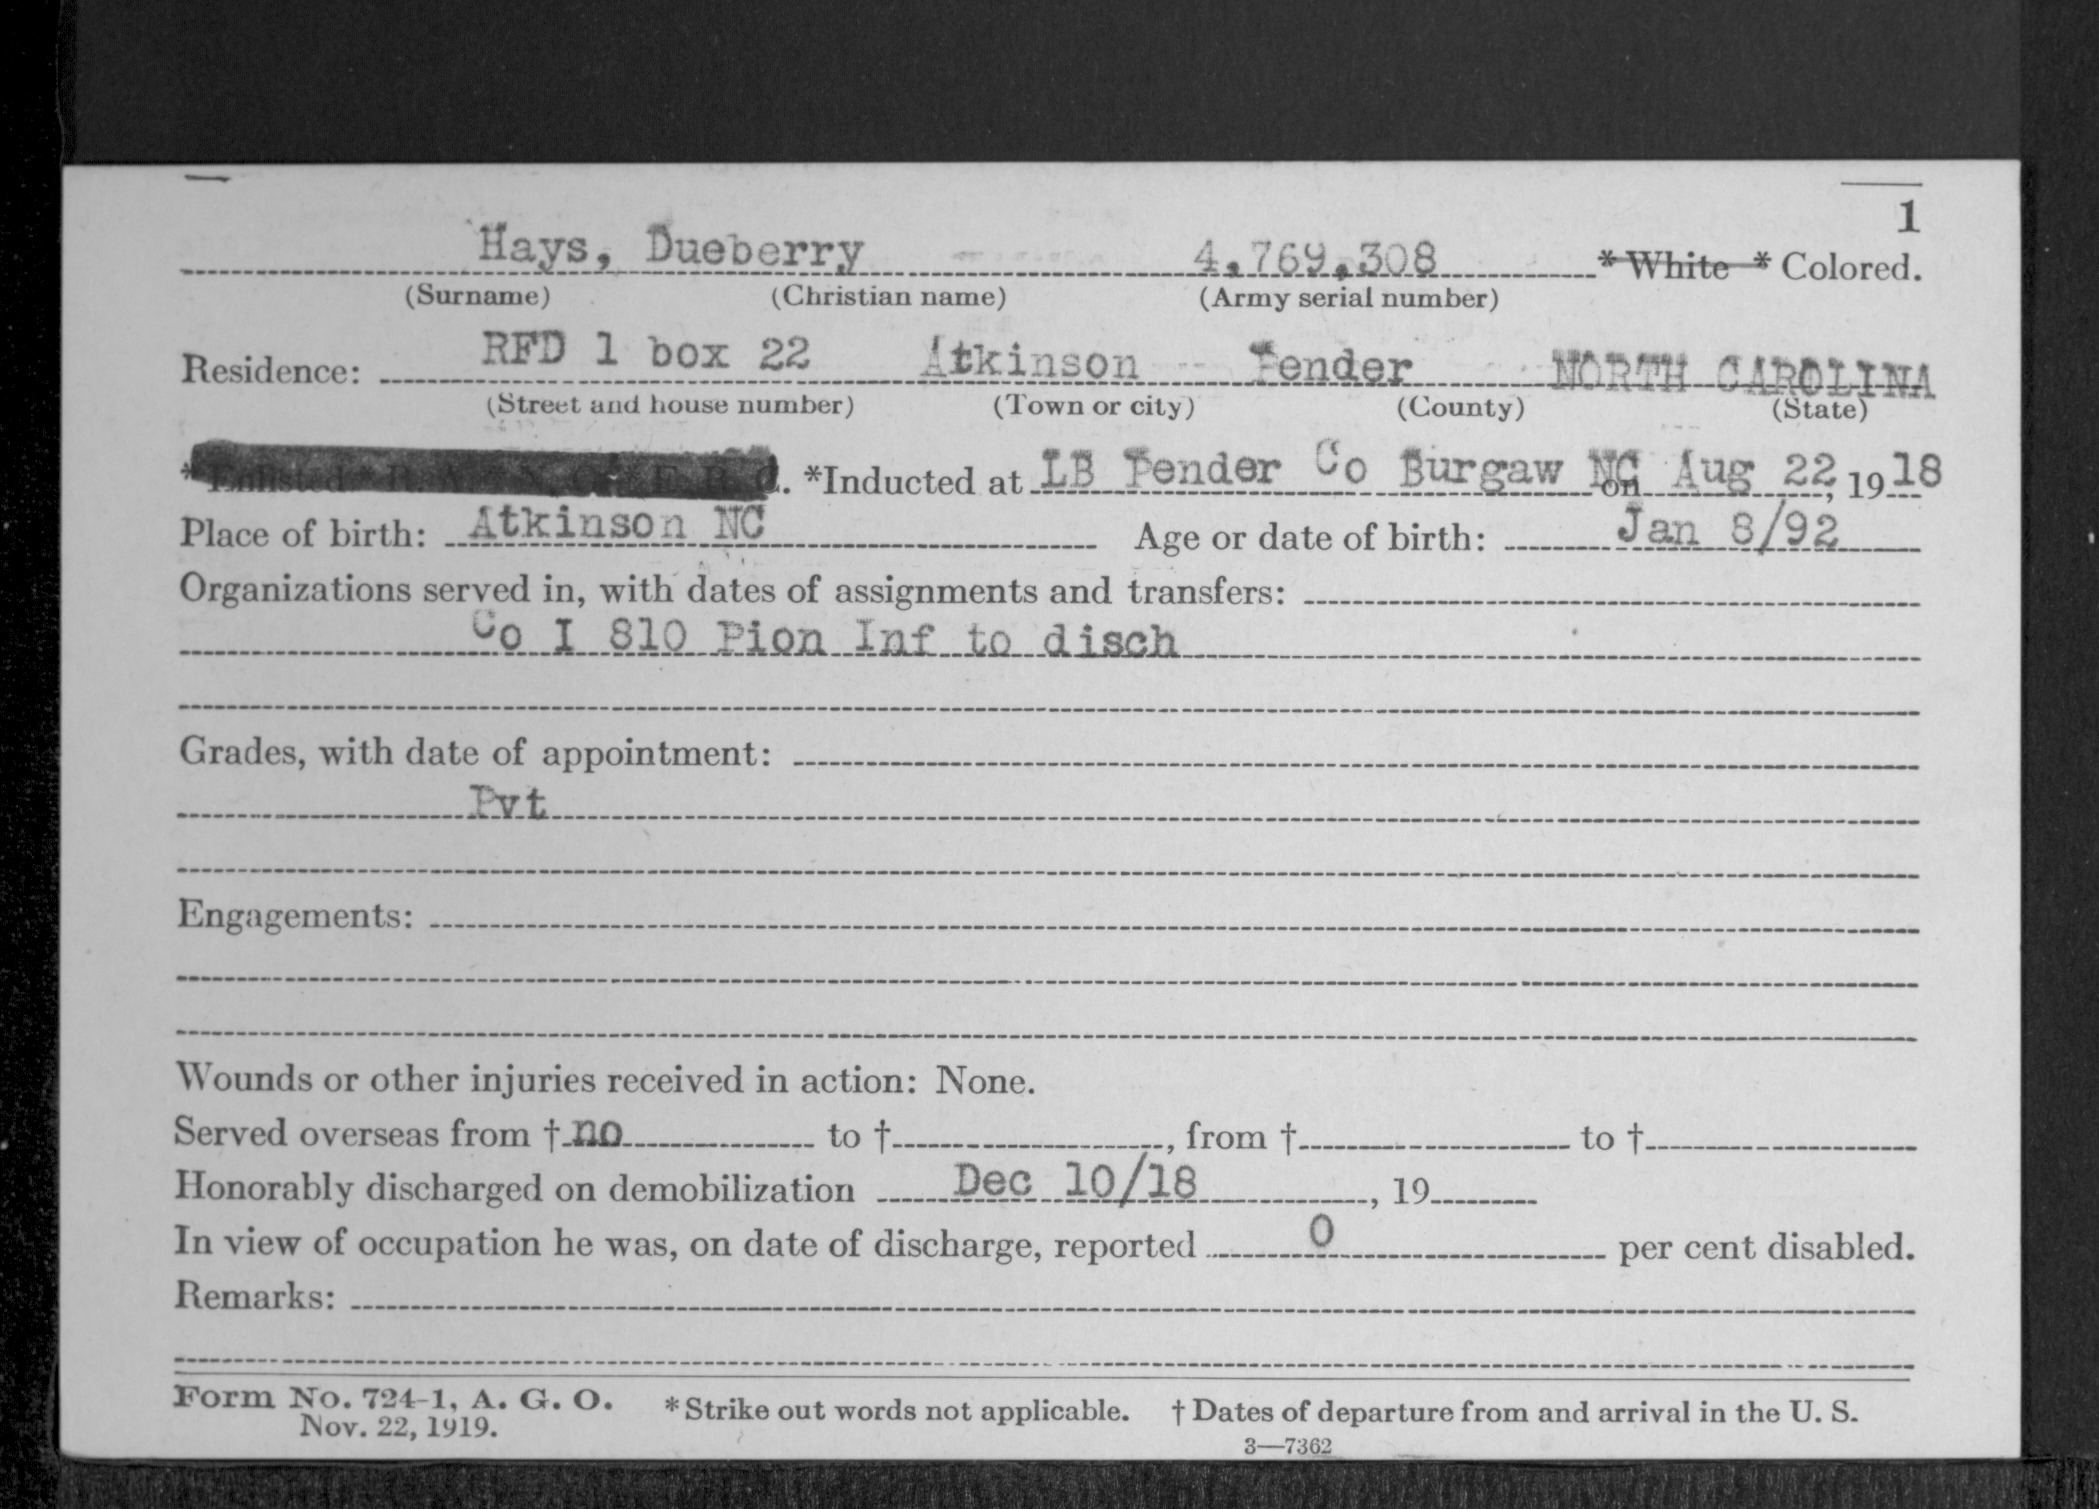 1
Hays, Dueberry 4,769,308 *White * Colored.
(Surname) (Christian name) (Army serial number)
Residence: RFD 1 box 22 Atkinson Pender NORTH CAROLINA
(Street and house number) (Town or city) (County) (State)
*Enlisted * R. A. * N. G. * E. R. C. *Inducted at LB Pender Co Burgaw NC on Aug 22, 1918
Place of birth: Atkinson NC Age or date of birth: Jan 8/92
Organizations served in, with dates of assignments and transfers:
Co I 810 Pion Inf to disch
Grades, with date of appointment:
Pvt
Engagements:
Wounds or other injuries received in action: None.
Served overseas from † no to †, from † to †
Honorably discharged on demobilization Dec 10/18, 19
In view of occupation he was, on date of discharge, reported 0 per cent disabled.
Remarks:
Form No. 724-1, A. G. O. *Strike out words not applicable. † Dates of departure from and arrival in the U. S.
Nov. 22, 1919.
3—7362